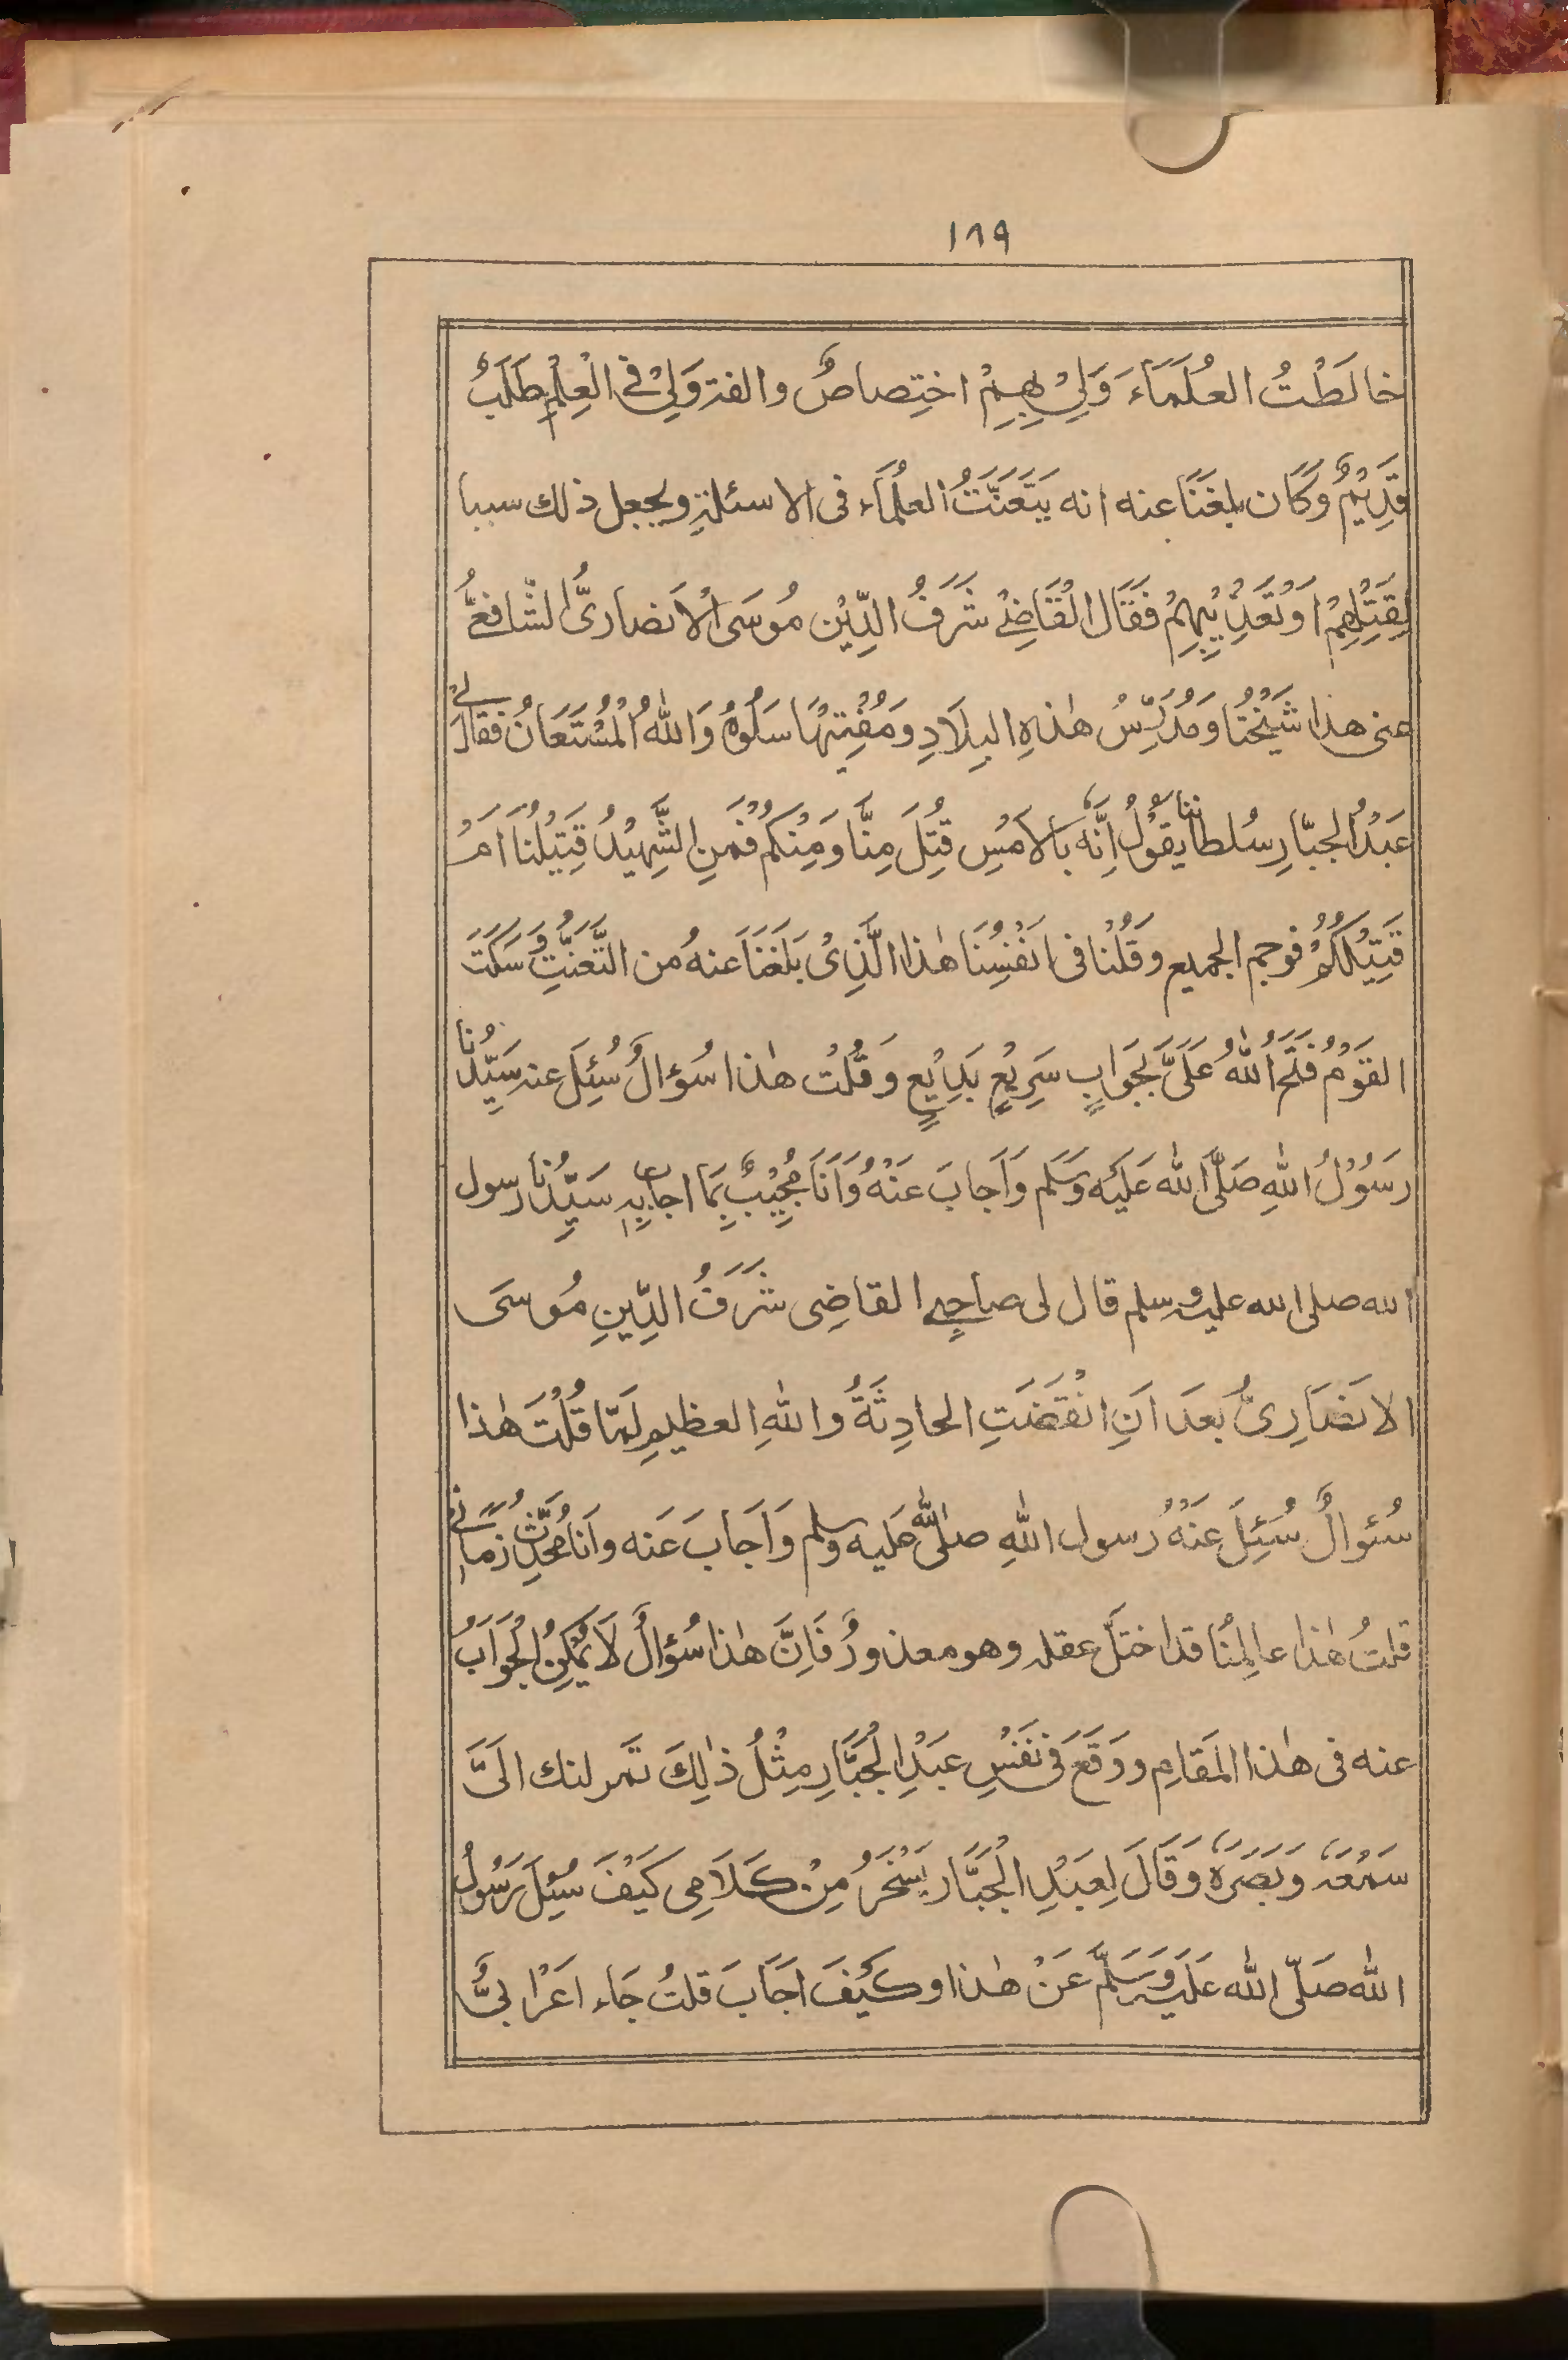 ١٨٩
خالَطْتُ العُلَمَاءَ وَلِيْ بِهِمْ اختِصاصٌ والفة وَلِيْ فى الْعِلْمِ طَلَبٌ
قَدِيْمٌ وَكَان بلغَنَا عنه انه يَتَعَنَّتُ العلُمَاء فى الاسئلةِ ويجعل ذلك سببا
لِقَتِلْهِمْ اوَتَعْذِيْبِهِمْ فَقَال القَاضِىْ شَرَفُ الدِّيْن مُوسَى الْاَنصارىُّ الشّافِعىُّ
عنى هذا شَيْخُنَا وَمُدَرِّسُ هٰذهِ البِلَادِ وَمُفْتِيْهَا سَلُوهُ وَاللهُ الْمُسْتَعَانُ فقال لِىْ
عَبْدُ الجبّارِ سُلطاننا يقُوْلُ اِنَّهُ بالاَمْسِ قُتِلَ مِنَّا وَمِنْكمُ فَمَنِ الشَّهِيْدُ قَتِيْلُنَا اَمْ
قَتِيْلُكُمْ فوجم الجميع وَقُلْنا فى انَفْسِنَا هٰذا الَّذِىْ بَلَغَنَا عنهُ من التَّعَنُّتِ وَسَكَتَ
القَوْمُ فَفَتَحَ اللهُ عَلَىَّ بجَوَابٍ سَرِيْعٍ بَدِيْعٍ وَقُلْتُ هٰذا سُؤالٌ سُئِلَ عنه سَيِّدُنَا
رَسُوْلُ اللهِ صَلَّى الله عَلَيْه وَسَلم وَاَجابَ عَنْهُ وَاَنَا مُجِيْبٌ بِمَا اجاب بِهِ سَيِّدُنا رسول
الله صلى الله عليه وسلم قال لى صاحِبِى القاضِى شَرَفُ الدِّينِ مُوسىَ
الانصَارِىُّ بعدَ اَنِ انْقَضَتِ الحادِثَةُ واللهِ العظيمِ لمّا قُلْتَ هٰذا
سُئوالٌ سُئِلَ عَنْهُ رسول اللهِ صلى الله عليه وسلم وَاَجَابَ عَنه واَنا مُحَدِّثُ زمَانِى
قلتُ هٰذا عالِمُنا قد اختلّ عقله وهو معذورٌ فَاِنَّ هٰذا سُؤالٌ لَا يُمْكِنُ الْجَوَابُ
عنه فى هٰذا المَقامِ ووَقَعَ فى نَفْسِ عَبْدِ الْجَبَّارِ مِثْلُ ذٰلِكَ تمرلنك الَىَّ
سَمْعَهُ وَبَصَرَهُ وَقَالَ لِعَبْدِ الْجَبَّار يَسْخَرُ مِنْ كَلَامِى كَيْفَ سُئِلَ رَسُوْلُ
الله صَلّى الله عَلَيْهِ وَسَلَّمَ عَنْ هٰذا وكَيْفَ اجَابَ قلتُ جَاء اعَرْابىٌّ